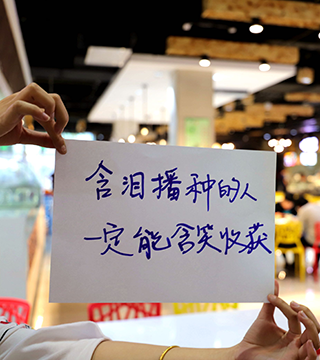 含泪播种的人
一定能含笑收获